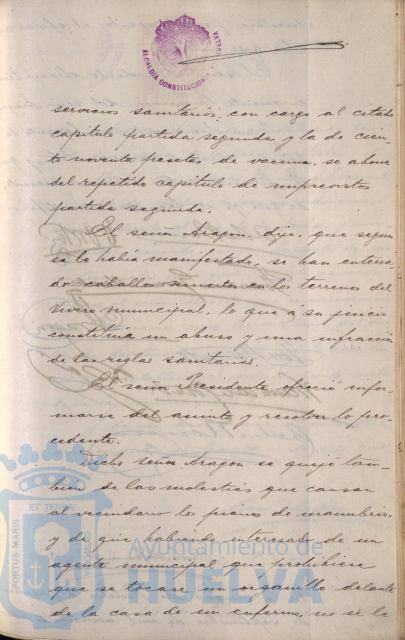 ALCALDIA CONSTITUCIONAL HUELVA
servicios sanitarios, con cargo al citado
capítulo partida segunda y la de cien-
to noventa pesetas de vacuna, se abone
del repetido capítulo de imprevistos
partida segunda.
El señor Aragon, dijo, que segun
se le había manifestado, se han enterra-
do caballos muertos en los terrenos del
vivero municipal, lo que á su juicio
constituía un abuso y una infracción
de las reglas sanitarias.
El señor Presidente ofreció infor-
marse del asunto y resolver lo pro-
cedente.
Dicho señor Aragon se quejó tam-
bien de las molestias que causan
al vecindario los pianos de manubrio,
y de que habiendo interesado de un
agente municipal que prohibiese
que se tocase un organillo delante
de la casa de un enfermo, no se le
PORTUS MARIS ET TERRE
Ayuntamiento de
HUELVA